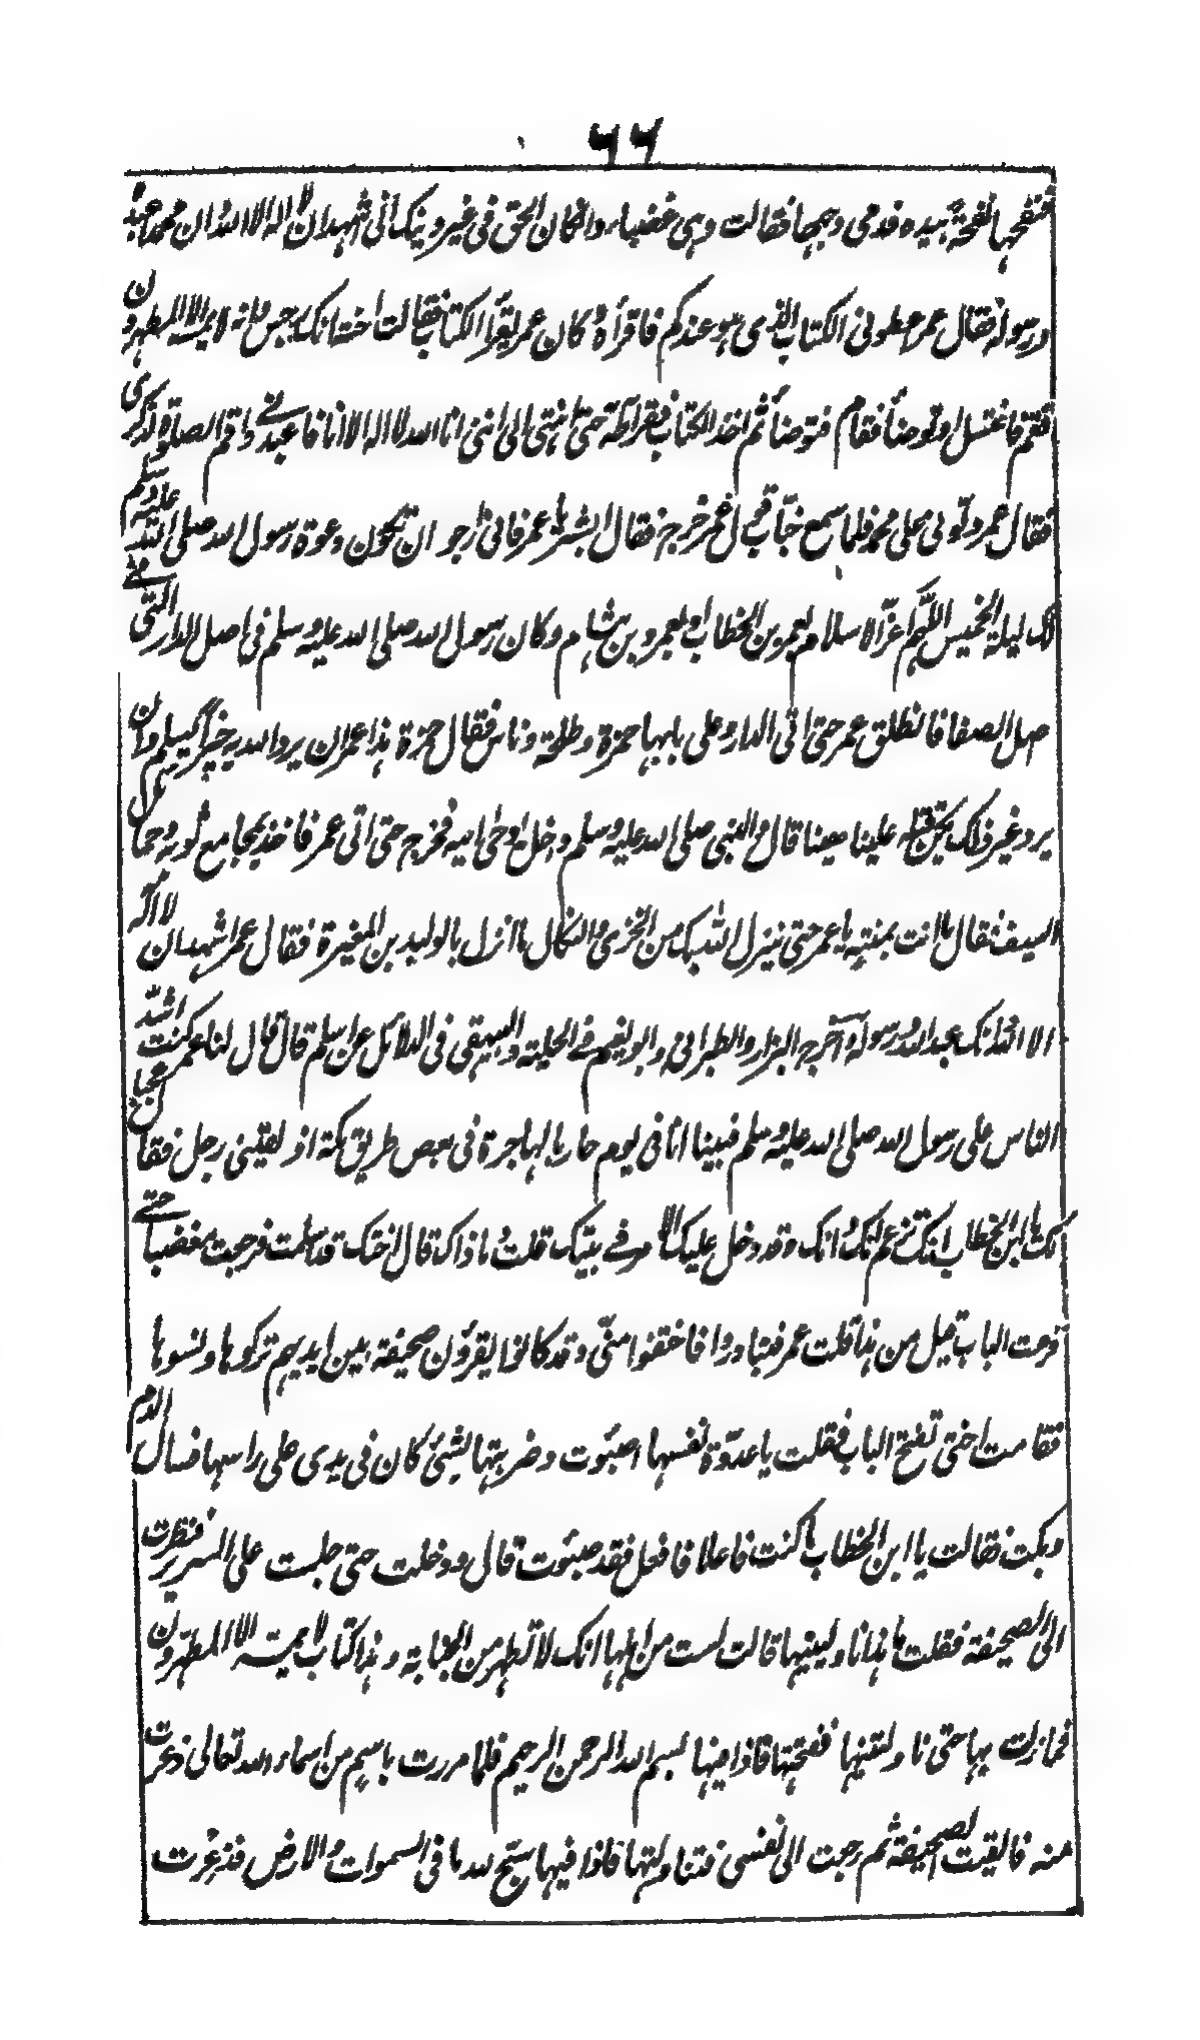 ٦٦
فنفحها نفحة بيده فدمى وجهها فقالت وهي غضباء وان كان الحق في غير دينك اني اشهد ان لا اله الا الله وان محمدا عبده
ورسوله فقال عمر اعطوني الكتاب الذي هو عندكم فاقرأه وكان عمر يقرأ الكتاب فقالت اخته انك رجس وانه لا يمسه الا المطهرون
فقم فاغتسل او توضأ فقام فتوضأ ثم اخذ الكتاب فقرأ طه حتى انتهى الى انني انا الله لا اله الا انا فاعبدني واقم الصلوة لذكري
فقال عمر دلوني على محمد فلما سمع خباب قول عمر خرج فقال ابشر يا عمر فاني ارجو ان تكون دعوة رسول الله صلى الله عليه وسلم
لك ليلة الخميس اللهم اعز الاسلام بعمر بن الخطاب او بعمرو بن هشام وكان رسول الله صلى الله عليه وسلم في اصل الدار التي
صل الصفا فانطلق عمر حتى اتى الدار وعلى بابها حمزة وطلحة وناس فقال حمزة هذا عمر ان يرد الله به خيرا يسلم وان
يرد غير ذلك يكن قتله علينا هينا قال والنبي صلى الله عليه وسلم داخل يوحى اليه فخرج حتى اتى عمر فاخذ بمجامع ثوبه وحمائل
السيف فقال ما انت بمنته يا عمر حتى ينزل الله بك من الخزي والنكال ما انزل بالوليد بن المغيرة فقال عمر اشهد ان لا اله
الا الله وانك عبد الله ورسوله واخرجه البزار والطبراني وابو نعيم في الحلية والبيهقي في الدلائل عن اسلم قال قال لنا عمر كنت اشد
الناس على رسول الله صلى الله عليه وسلم فبينا انا في يوم حار بالهاجرة في بعض طريق مكة اذ لقيني رجل فقال عجبا
لك يا ابن الخطاب انك تزعم انك وانك وقد دخل عليك الامر في بيتك قلت وما ذاك قال اختك قد اسلمت فرجعت مغضبا حتى
قرعت الباب قيل من هذا قلت عمر فتبادروا فاختفوا مني وقد كانوا يقرؤن صحيفة بين ايديهم تركوها ونسوها
فقامت اختي تفتح الباب فقلت يا عدوة نفسها اصبوت وضربتها بشيء كان في يدي على راسها فسال الدم
وبكت فقالت يا ابن الخطاب ما كنت فاعلا فافعل فقد صبوت قال ودخلت حتى جلست على السرير فنظرت
الى الصحيفة فقلت ما هذا ناولينيها قالت لست من اهلها انك لا تطهر من الجنابة وهذا كتاب لا يمسه الا المطهرون
فما زلت بها حتى ناولتنيها ففتحتها فاذا فيها بسم الله الرحمن الرحيم فلما مررت باسم من اسماء الله تعالى ذعرت
منه فالقيت الصحيفة ثم رجعت الى نفسي فتناولتها فاذا فيها سبح لله ما في السموات والارض فذعرت